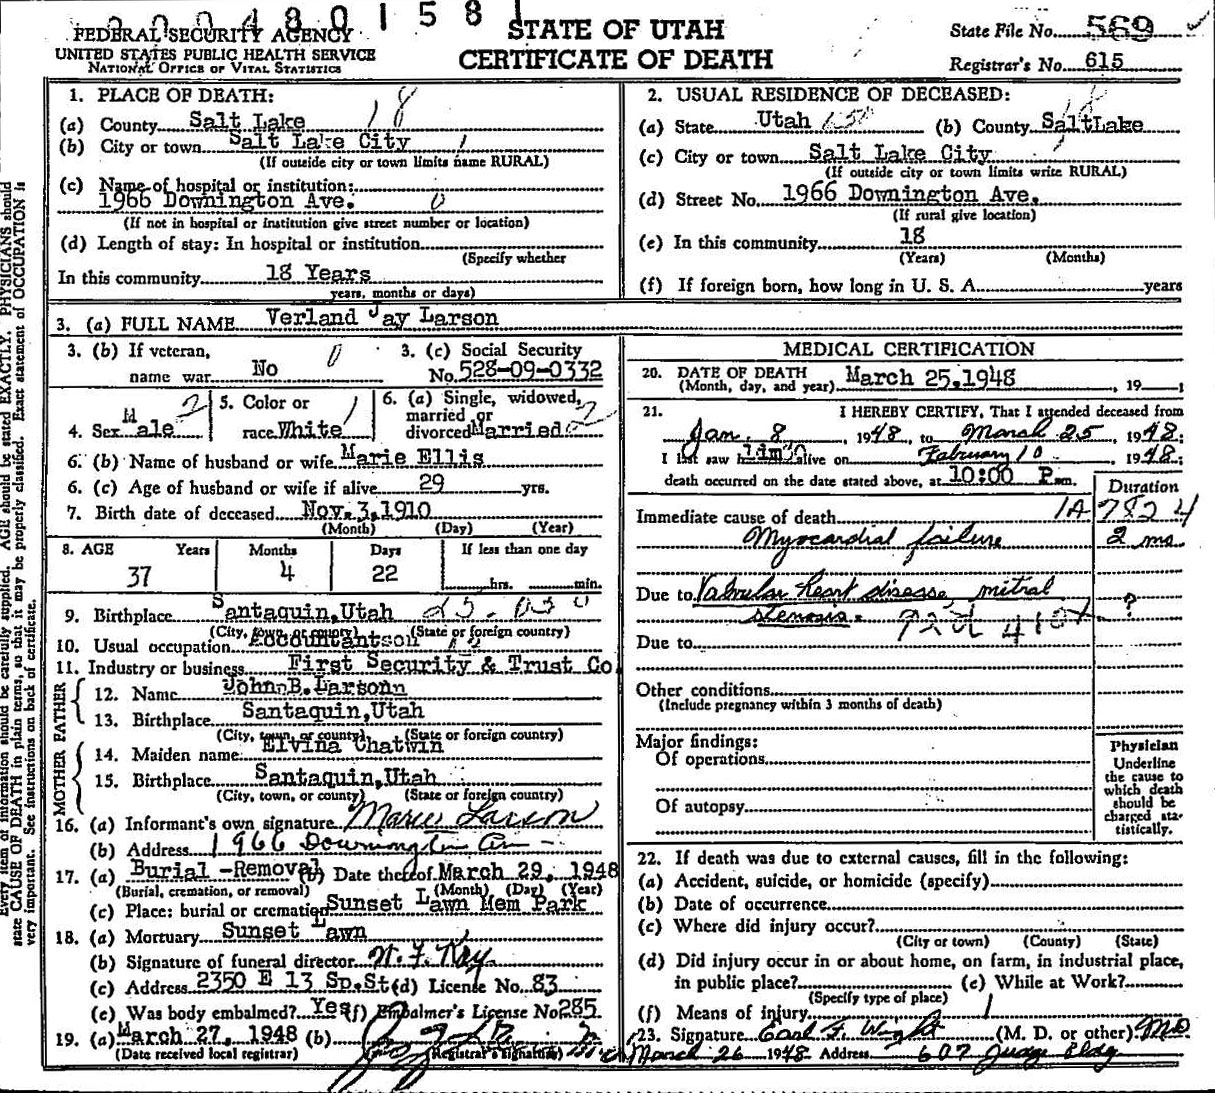 2 0 0 4 8 0 1 5 8 1
FEDERAL SECURITY AGENCY
UNITED STATES PUBLIC HEALTH SERVICE
NATIONAL OFFICE OF VITAL STATISTICS
STATE OF UTAH
CERTIFICATE OF DEATH
State File No. 569
Registrar's No. 615
1. PLACE OF DEATH:
(a) County Salt Lake 18
(b) City or town Salt Lake City 1
(If outside city or town limits name RURAL)
(c) Name of hospital or institution:
1966 Downington Ave. 0
(If not in hospital or institution give street number or location)
(d) Length of stay: In hospital or institution
(Specify whether
In this community 18 Years
years, months or days)
2. USUAL RESIDENCE OF DECEASED:
(a) State Utah (b) County SaltLake 18
(c) City or town Salt Lake City
(If outside city or town limits write RURAL)
(d) Street No. 1966 Downington Ave.
(If rural give location)
(e) In this community 18
(Years) (Months)
(f) If foreign born, how long in U. S. A. years
3. (a) FULL NAME Verland Jay Larson
3. (b) If veteran, name war No 0
3. (c) Social Security No. 528-09-0332
4. Sex Male 2
5. Color or race White 1
6. (a) Single, widowed, married or divorced Married 2
6. (b) Name of husband or wife Marie Ellis
6. (c) Age of husband or wife if alive 29 yrs.
7. Birth date of deceased Nov. 3, 1910
(Month) (Day) (Year)
8. AGE Years Months Days If less than one day
37 4 22 hrs. min.
9. Birthplace Santaquin, Utah
(City, town, or county) (State or foreign country)
10. Usual occupation Accountant
11. Industry or business First Security & Trust Co.
FATHER
12. Name John B. Larsonn
13. Birthplace Santaquin, Utah
(City, town, or county) (State or foreign country)
MOTHER
14. Maiden name Elvina Chatwin
15. Birthplace Santaquin, Utah
(City, town, or county) (State or foreign country)
16. (a) Informant's own signature Marie Larson
(b) Address 1966 Downington Ave
17. (a) Burial - Removal (b) Date thereof March 29, 1948
(Burial, cremation, or removal) (Month) (Day) (Year)
(c) Place: burial or cremation Sunset Lawn Mem Park
18. (a) Mortuary Sunset Lawn
(b) Signature of funeral director
(c) Address 2350 E 13 So. St (d) License No. 83
(e) Was body embalmed? Yes (f) Embalmer's License No 285
19. (a) March 27, 1948 (b)
(Date received local registrar) (Registrar's signature)
MEDICAL CERTIFICATION
20. DATE OF DEATH
(Month, day, and year) March 25, 1948, 19
21. I HEREBY CERTIFY, That I attended deceased from
Jan. 8, 1948, to March 25, 1948;
I last saw him alive on February 10, 1948;
death occurred on the date stated above, at 10:00 P.m.
Duration
Immediate cause of death 1A 7824
Myocardial failure 2 mo
Due to Valvular heart disease, mitral
stenosis. ?
Due to
Other conditions
(Include pregnancy within 3 months of death)
Major findings:
Of operations
Of autopsy
Physician
Underline
the cause to
which death
should be
charged sta-
tistically.
22. If death was due to external causes, fill in the following:
(a) Accident, suicide, or homicide (specify)
(b) Date of occurrence
(c) Where did injury occur?
(City or town) (County) (State)
(d) Did injury occur in or about home, on farm, in industrial place,
in public place? (e) While at Work?
(Specify type of place)
(f) Means of injury
23. Signature Earl F. Wight (M. D. or other) MD
March 26 1948 Address 607 Judge Bldg
Every item of information should be carefully supplied. AGE should be stated EXACTLY. PHYSICIANS should
state CAUSE OF DEATH in plain terms, so that it may be properly classified. Exact statement of OCCUPATION is
very important. See instructions on back of certificate.